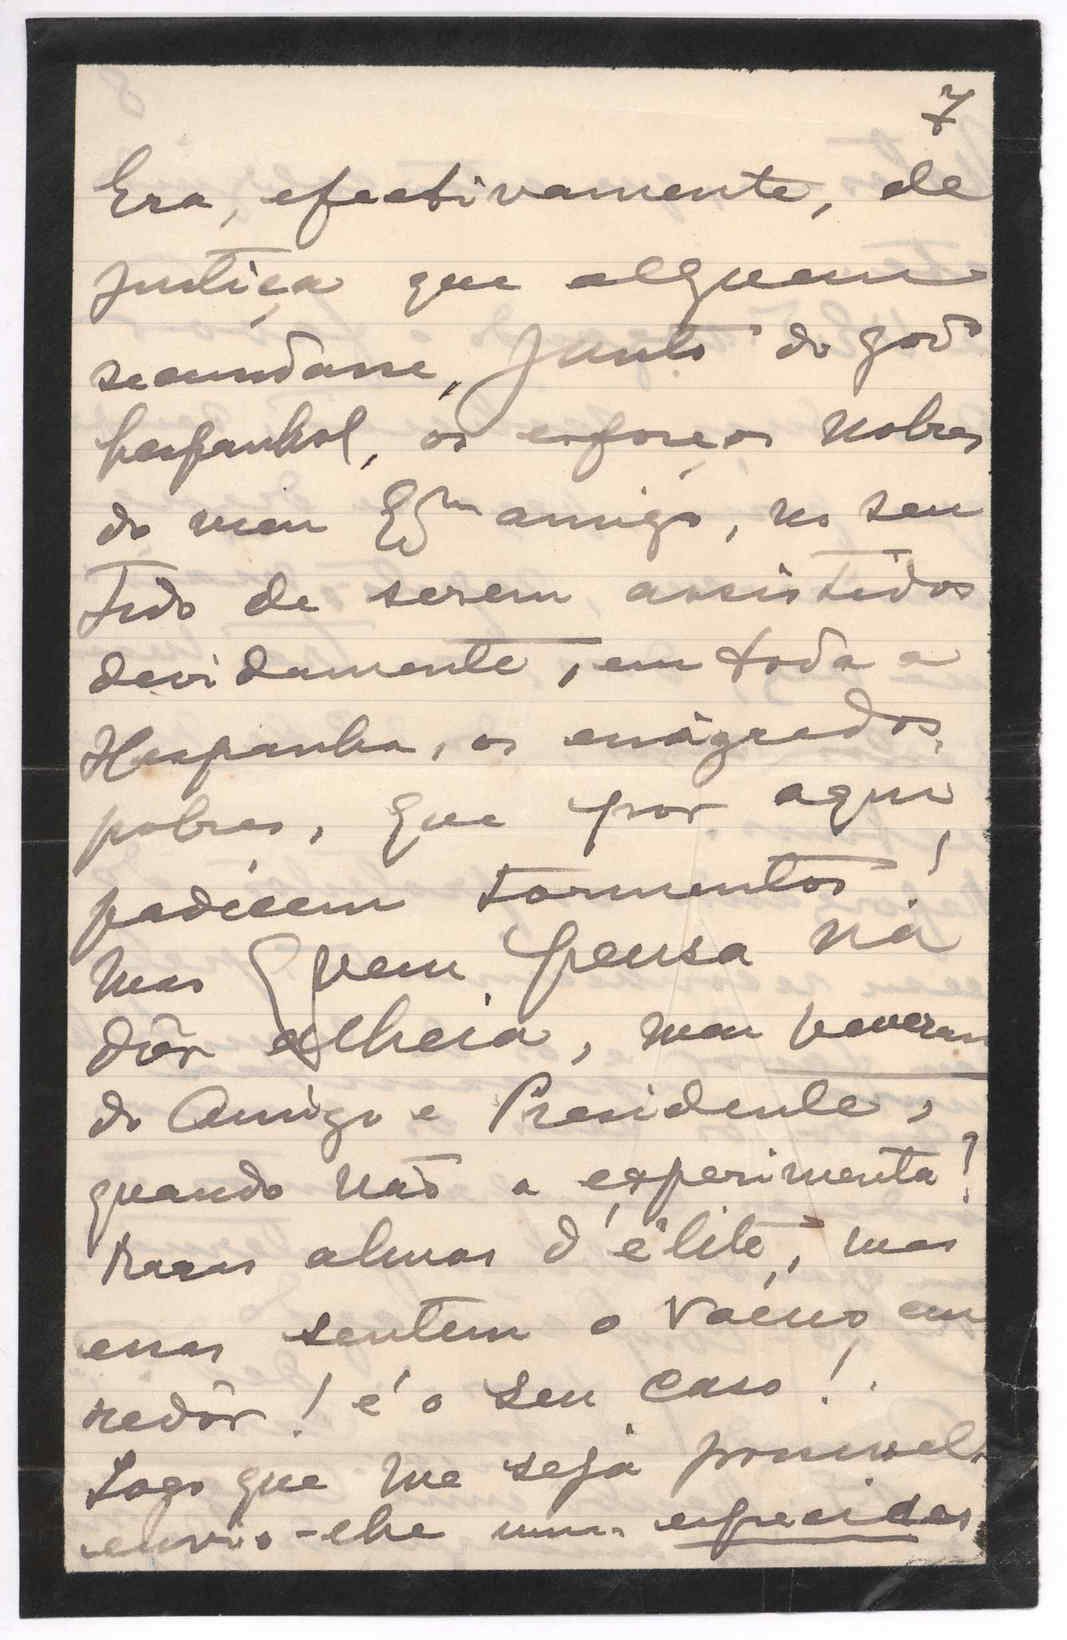 7
Era, efectivamente, de
justiça que alguem
secundasse, junto do govº
hespanhol, os esforços nobres
do meu Exmº amigo, no sen
tido de serem assistidos
devidamente, em toda a
Hespanha, os emigrados,
pobres, que por aqui
padecem tormentos!
Mas Quem pensa na
dôr alheia, meu veneran
do Amigo e Presidente,
quando não a experimenta?
Raras almas d'élite, mas
essas sentem o vacuo, em
redôr! é o seu caso!
Logo que me seja possivel,
envio-lhe uma